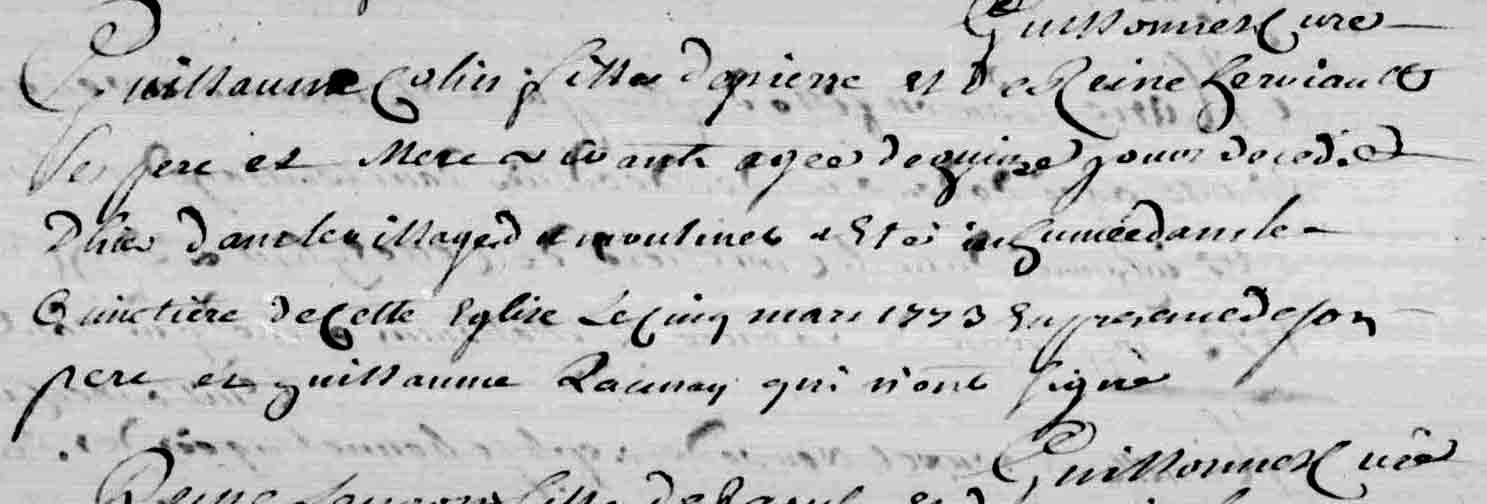 Guillonnet Curé
Guillaume Colin fille de pierre et de Reine herviault
ses pere et Mere vivants agée de quinze jours decedé
d'hier dans le village de moulines a Eté inhumée dans le
Cimetière de Cette Eglise Le Cinq mars 1773 En presence de son
pere et guillaume Launay qui n'ont signé
Guillonnet Curé
fille de et